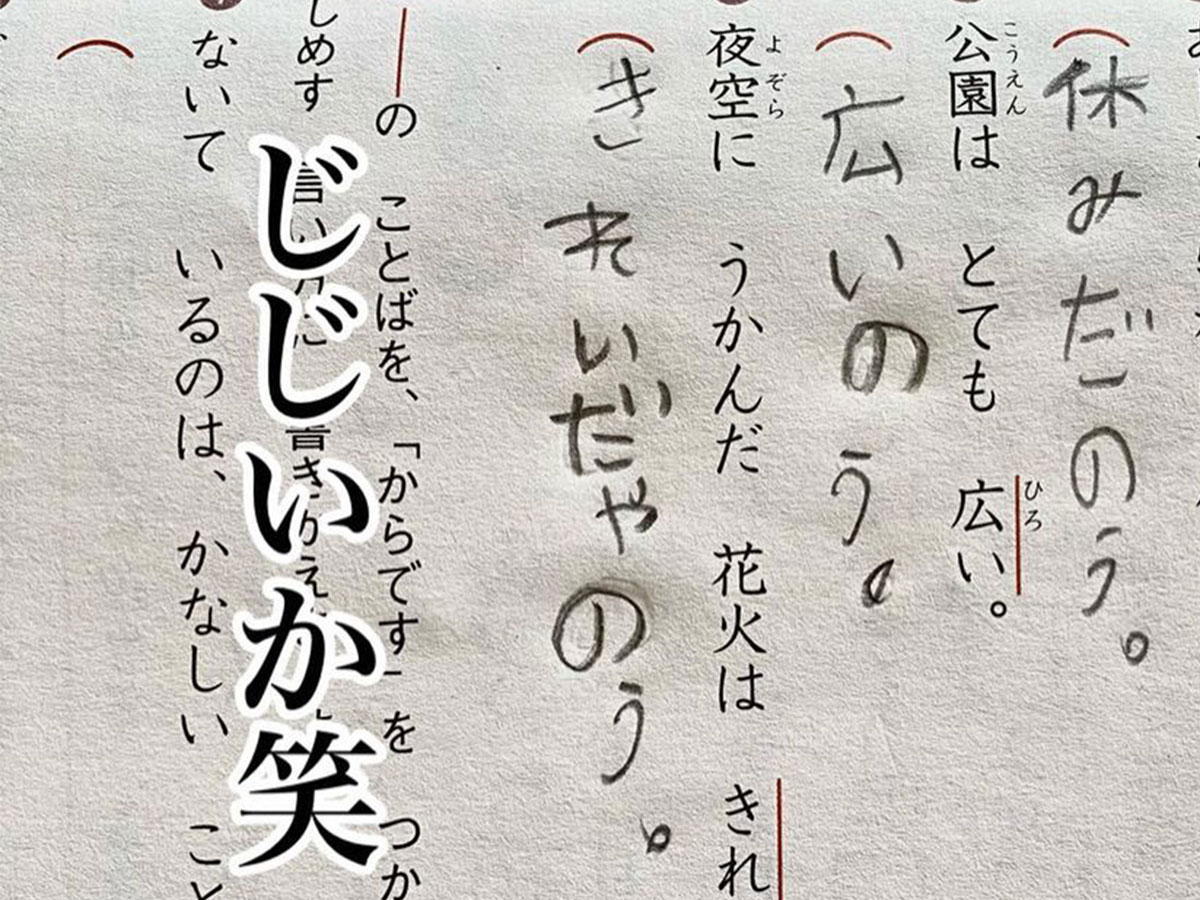 休みだのう。
こうえん ひろ
公園は とても 広い。
広いのう。
よぞら
夜空に うかんだ 花火は きれ
きれいだやのう。
の ことばを、「からです」を つか
しめす
じじいか笑
ないて いるのは、かなしい こと